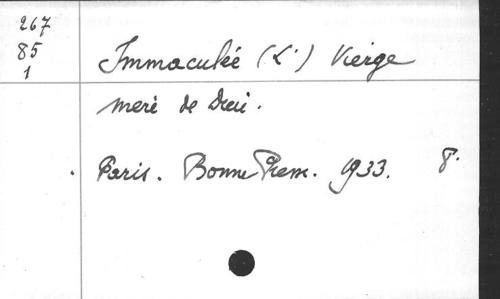 267
85
1
Immaculée (L') Vierge
mère de Dieu.
Paris. Bonne Presse. 1933. 8°.